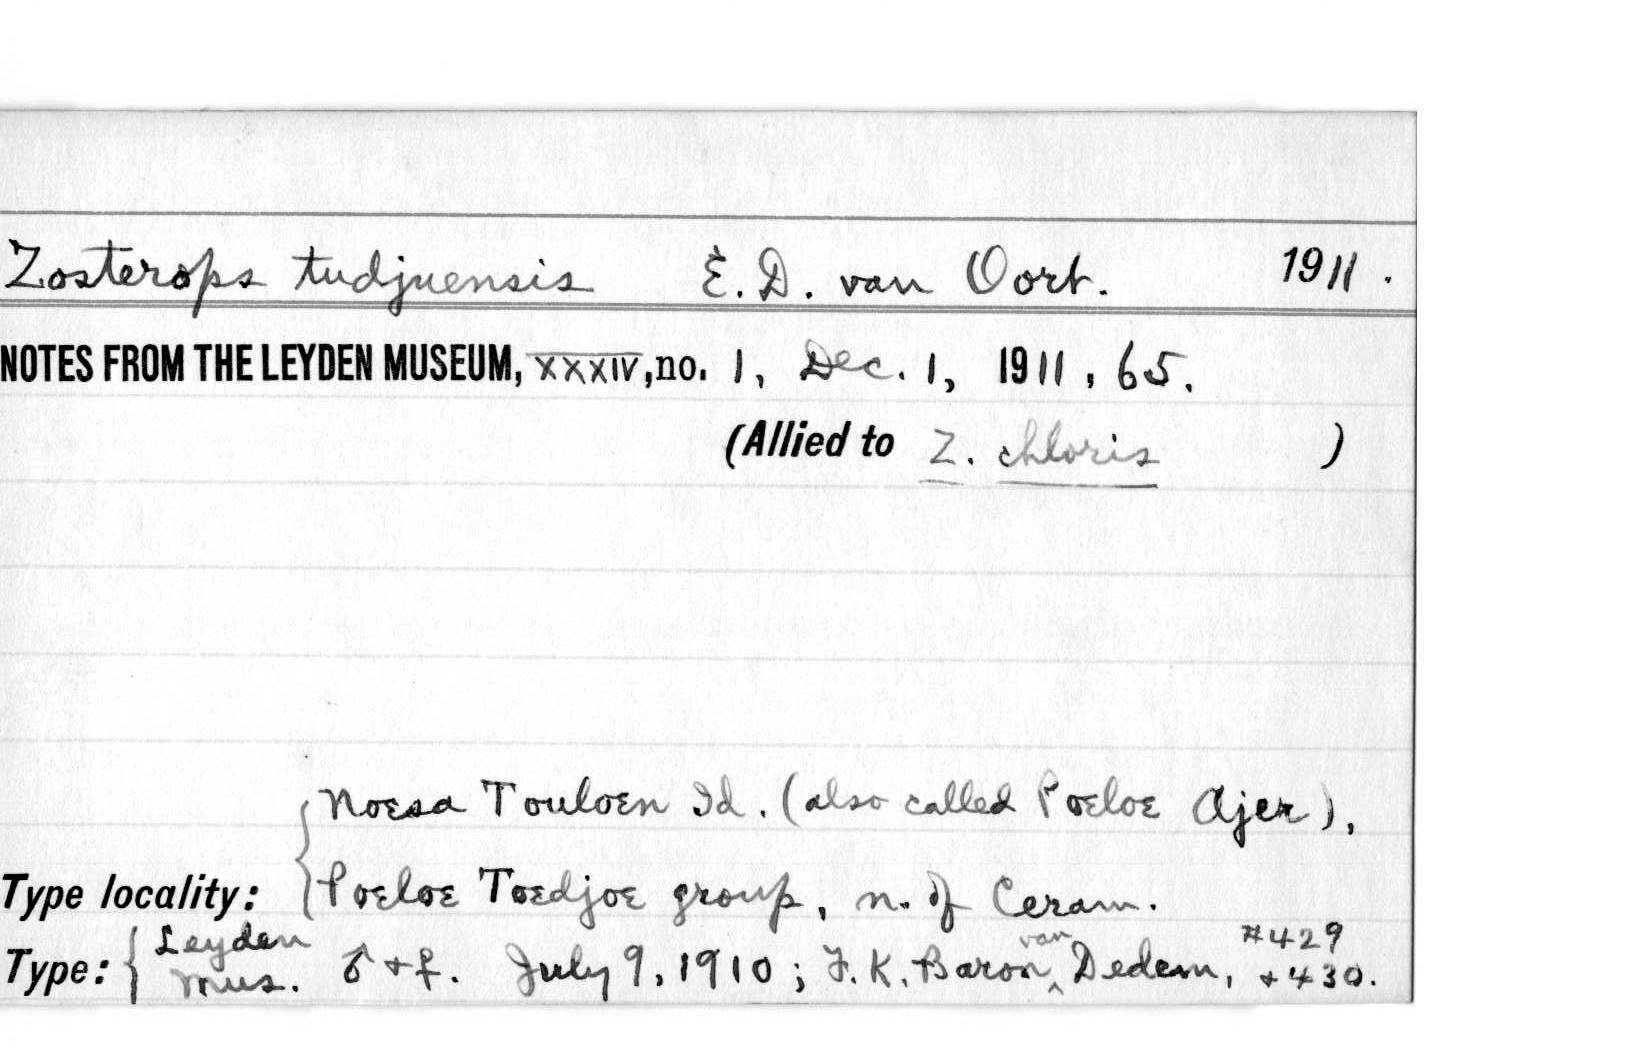 Zosterops tudjuensis E. D. van Oort. 1911.
NOTES FROM THE LEYDEN MUSEUM, XXXIV, no. 1, Dec. 1, 1911, 65.
(Allied to Z. chloris )
Noesa Touloen Id. (also called Poeloe Ajer),
Type locality: Poeloe Toedjoe group, n. of Ceram.
Type: Leyden Mus. ♂ + ♀. July 9, 1910; F. K. Baron van Dedem, #429 + 430.